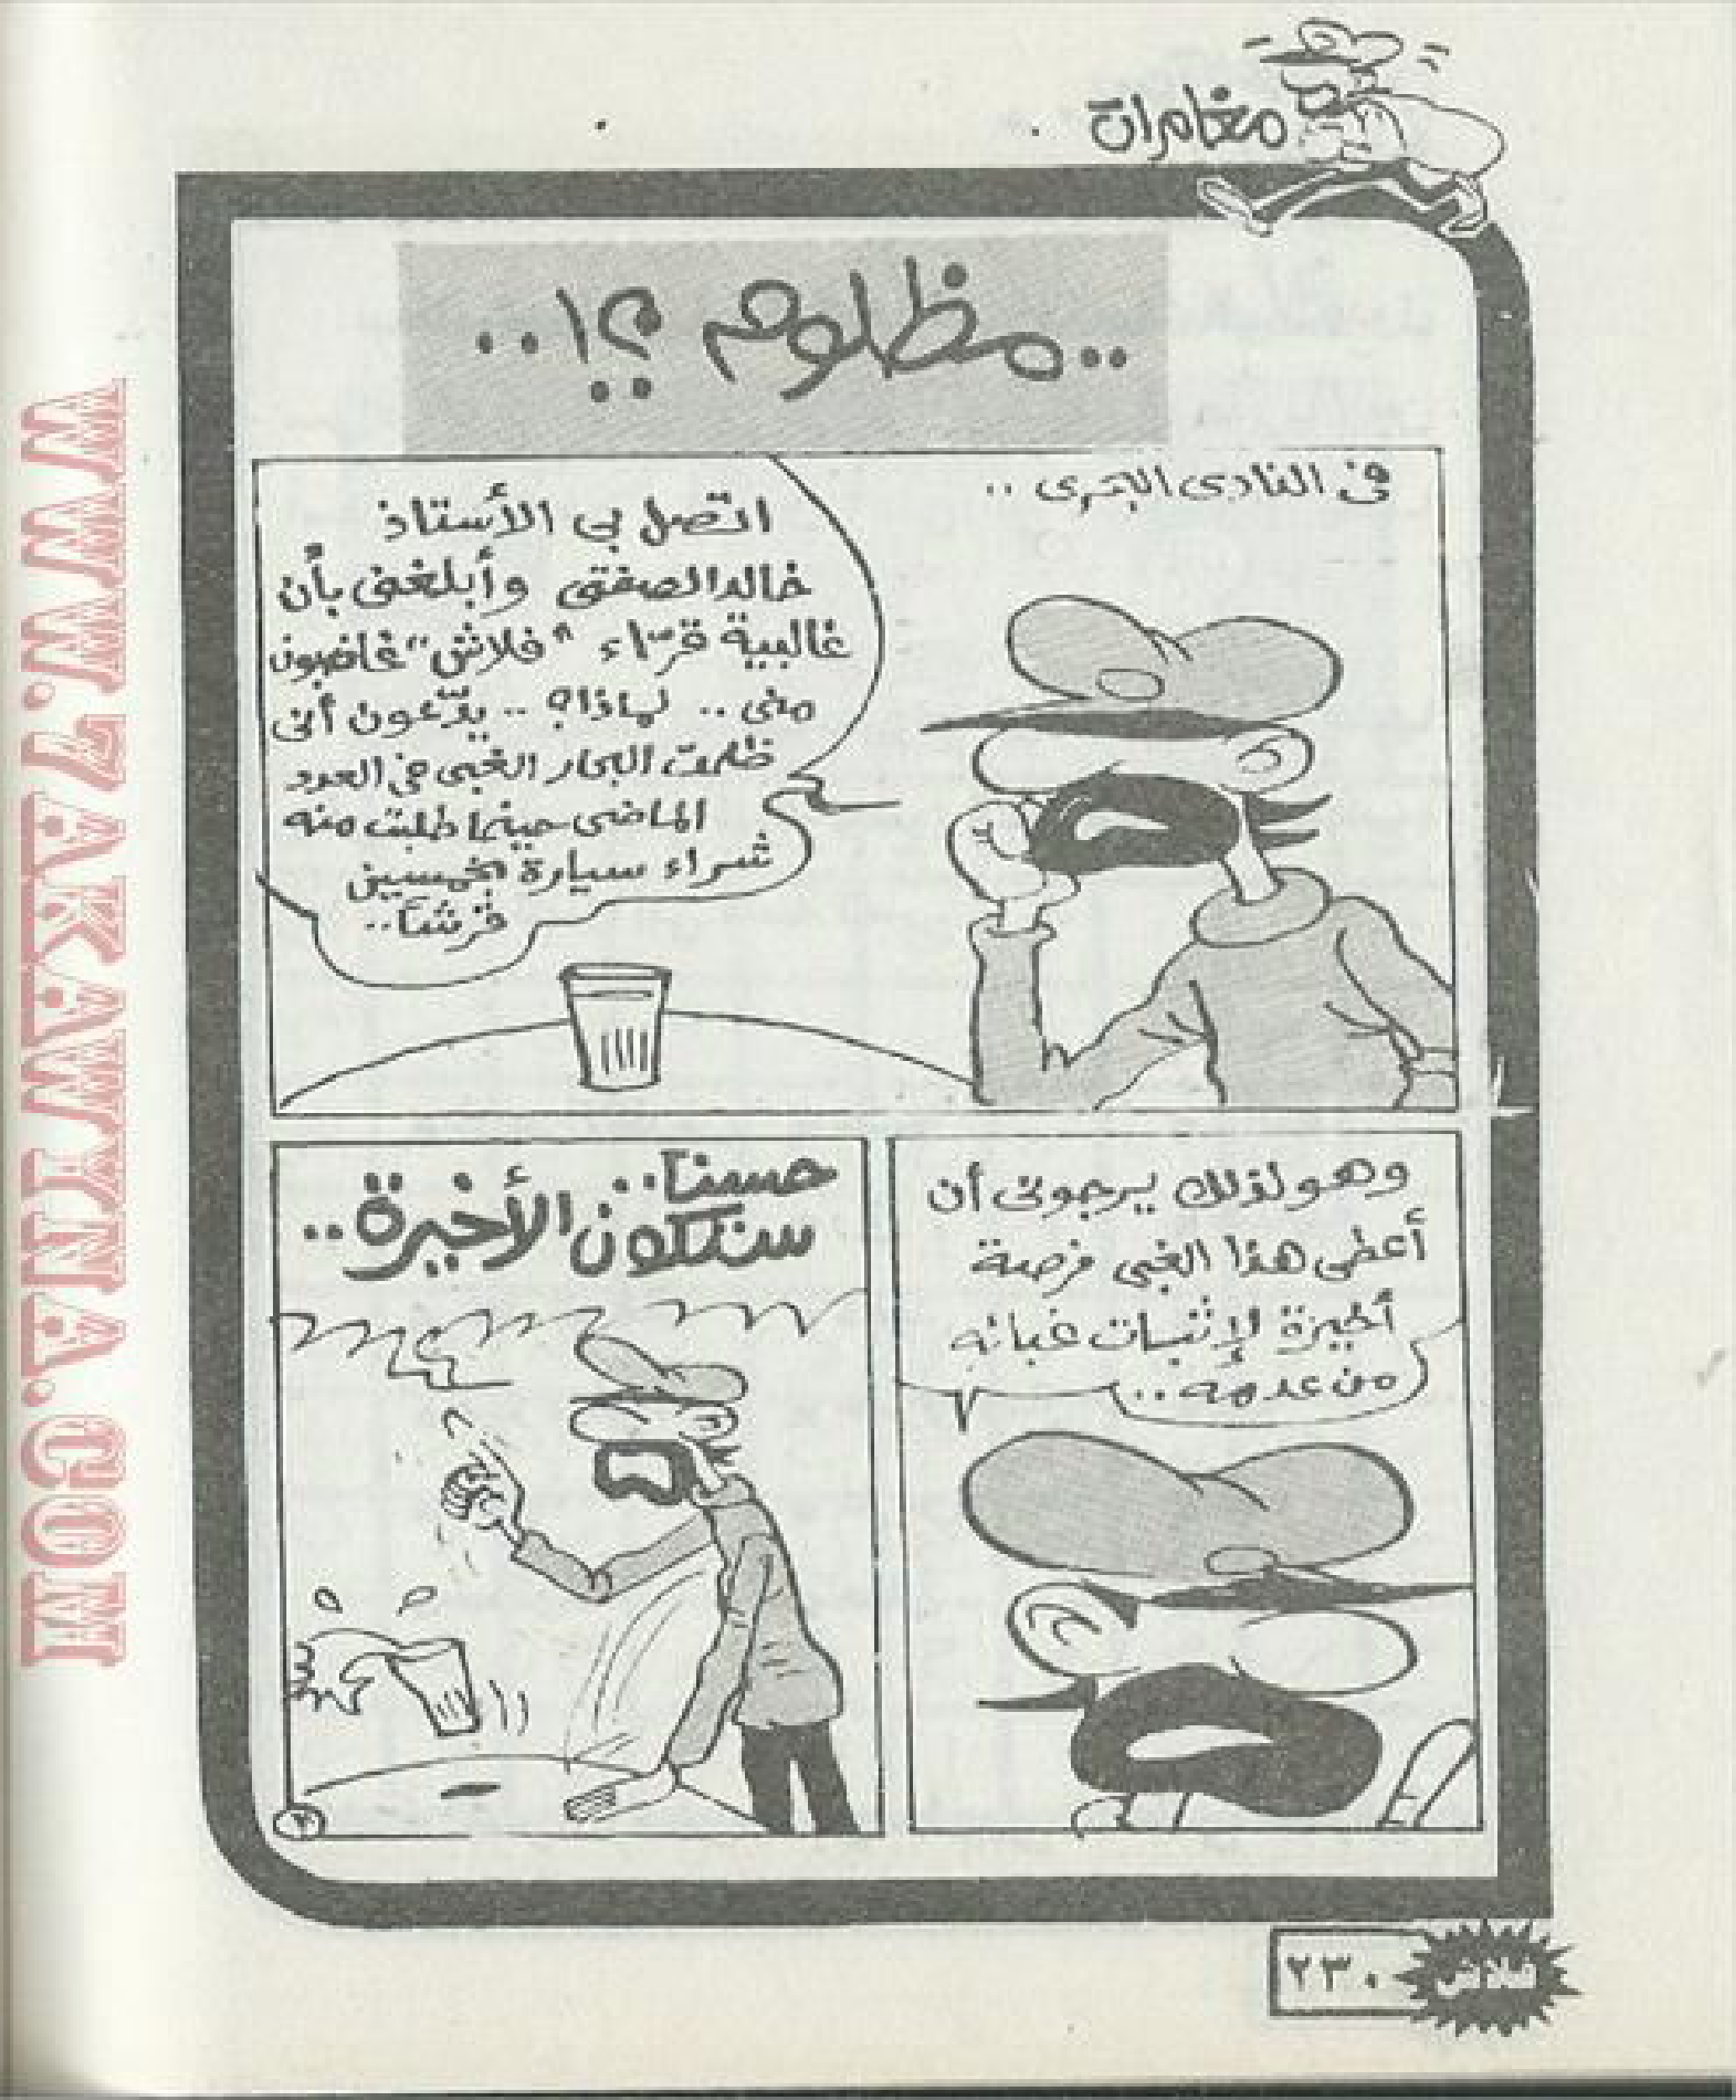 مغامرات
..مظلوم ؟!..
فى النادى البحرى ..
اتصل بي الأستاذ
خالد الصفتى وأبلغنى بأن
غالبية قرّاء "فلاش" غاضبون
منى .. لماذا؟ .. يدّعون أنى
ظلمت البحار الغبى فى العدد
الماضى حينما طلبت منه
شراء سيارة بخمسين
قرشاً..
وهو لذلك يرجونى أن
أعطى هذا الغبى فرصة
أخيرة لإثبات غبائه
من عدمه ..
حسناً..
ستكون الأخيرة..
فلاش
٢٣٠
WWW.7AKAWITNA.COM